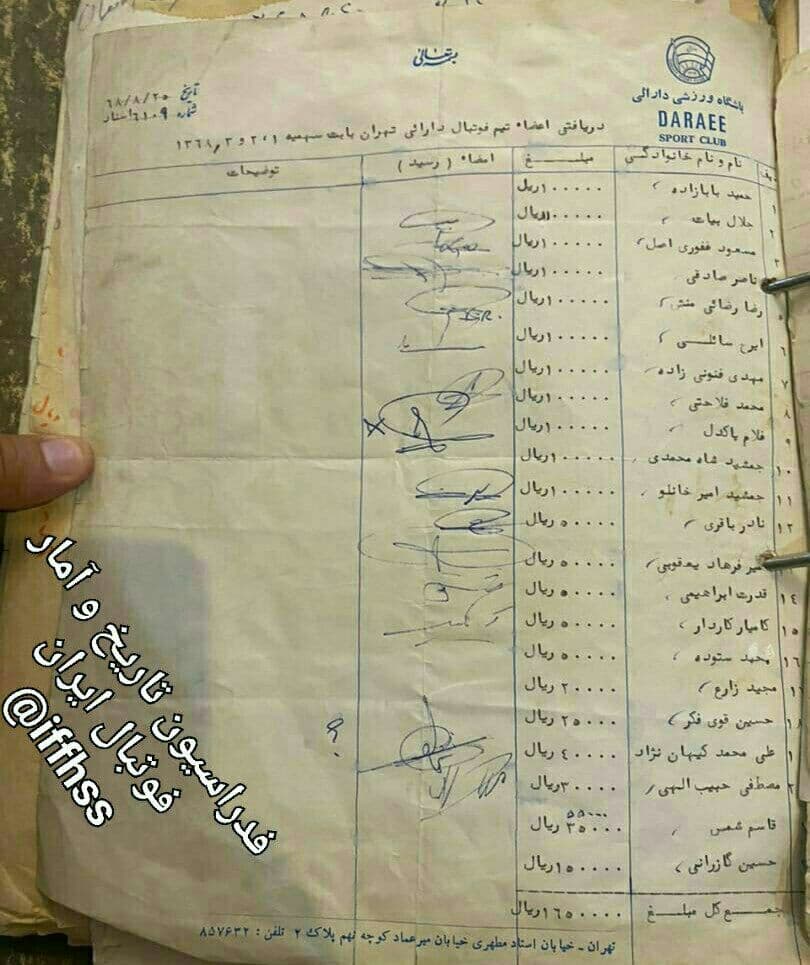 بسمه تعالی
باشگاه ورزشی دارائی
DARAEE
SPORT CLUB
تاریخ ۶۸/۸/۲۵
شماره ۶۱۰۹/استار
دریافتی اعضاء تیم فوتبال دارائی تهران بابت سهمیه ۱،۲ و ۳، ۱۳۶۸
نام و نام خانوادگی مبلغ امضاء (رسید) توضیحات
۱ حمید بابازاده ۱۰۰۰۰۰ ریال
۲ جلال بیات ۱۰۰۰۰۰ ریال
۳ مسعود غفوری اصل ۱۰۰۰۰۰ ریال
ناصر صادقی ۱۰۰۰۰۰ ریال
۵ رضا رضائی منش ۱۰۰۰۰۰ ریال
۶ ایرج سائلسی ۱۰۰۰۰۰ ریال
۷ مهدی فنونی زاده ۱۰۰۰۰۰ ریال
۸ محمد فلاحتی ۱۰۰۰۰۰ ریال
۹ غلام پاکدل ۱۰۰۰۰۰ ریال
۱۰ جمشید شاه محمدی ۱۰۰۰۰۰ ریال
۱۱ جمشید امیر خانلو ۱۰۰۰۰۰ ریال
۱۲ نادر باقری ۵۰۰۰۰ ریال
امیر فرهاد یعقوبی ۵۰۰۰۰ ریال
۱۴ قدرت ابراهیمی ۵۰۰۰۰ ریال
۱۵ کامیار کاردار ۵۰۰۰۰ ریال
۱۶ محمد ستوده ۵۰۰۰۰ ریال
۱ مجید زارع ۲۰۰۰۰ ریال
۱۸ حسین قوی فکر ۲۵۰۰۰ ریال ؟
۱ علی محمد کیهان نژاد ۴۰۰۰۰ ریال
۲ مصطفی حبیب الهی ۳۰۰۰۰ ریال
۵۵۰۰۰
قاسم شمس ۳۵۰۰۰ ریال
حسین گازرانی ۱۵۰۰۰۰ ریال
جمع کل مبلغ ۱۶۵۰۰۰۰ ریال
تهران - خیابان استاد مطهری خیابان میرعماد کوچه نهم پلاک ۲ تلفن : ۸۵۷۶۳۲
فدراسیون تاریخ و آمار
فوتبال ایران
@iffhss